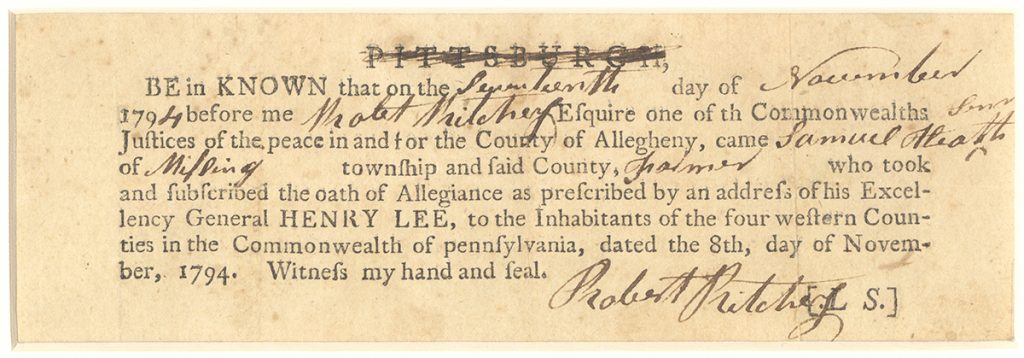 PITTSBURGH,
BE in KNOWN that on the Seventeenth day of November
1794 before me Robet Ritchey Esquire one of th Commonwealths
Justices of the peace in and for the County of Allegheny, came Samuel Heath Senr
of Mifling township and said County, farmer who took
and subscribed the oath of Allegiance as prescribed by an address of his Excel-
lency General HENRY LEE, to the Inhabitants of the four western Coun-
ties in the Commonwealth of pennsylvania, dated the 8th, day of Novem-
ber, 1794. Witness my hand and seal.
Robert Ritchey [.L S.]